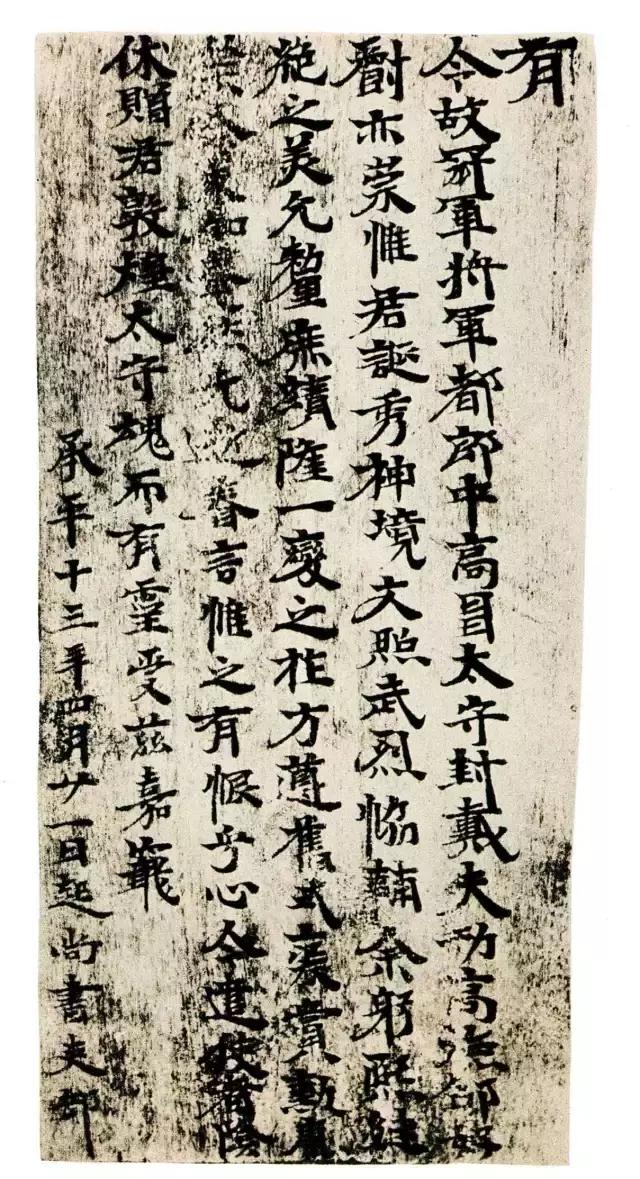 有
令故冠軍將軍都郎中高昌太守封戴夫功高德邵好
爵亦崇惟君誕秀神境文照武烈協輔余躬熙繼
絕之美允釐庶績隆一變之祚方遵舊式褒賞勳庸
眷言惟之有恨乎心今遣使者陰
休贈君敦煌太守魂而有靈受茲嘉寵
承平十三年四月廿一日起尚書吏部